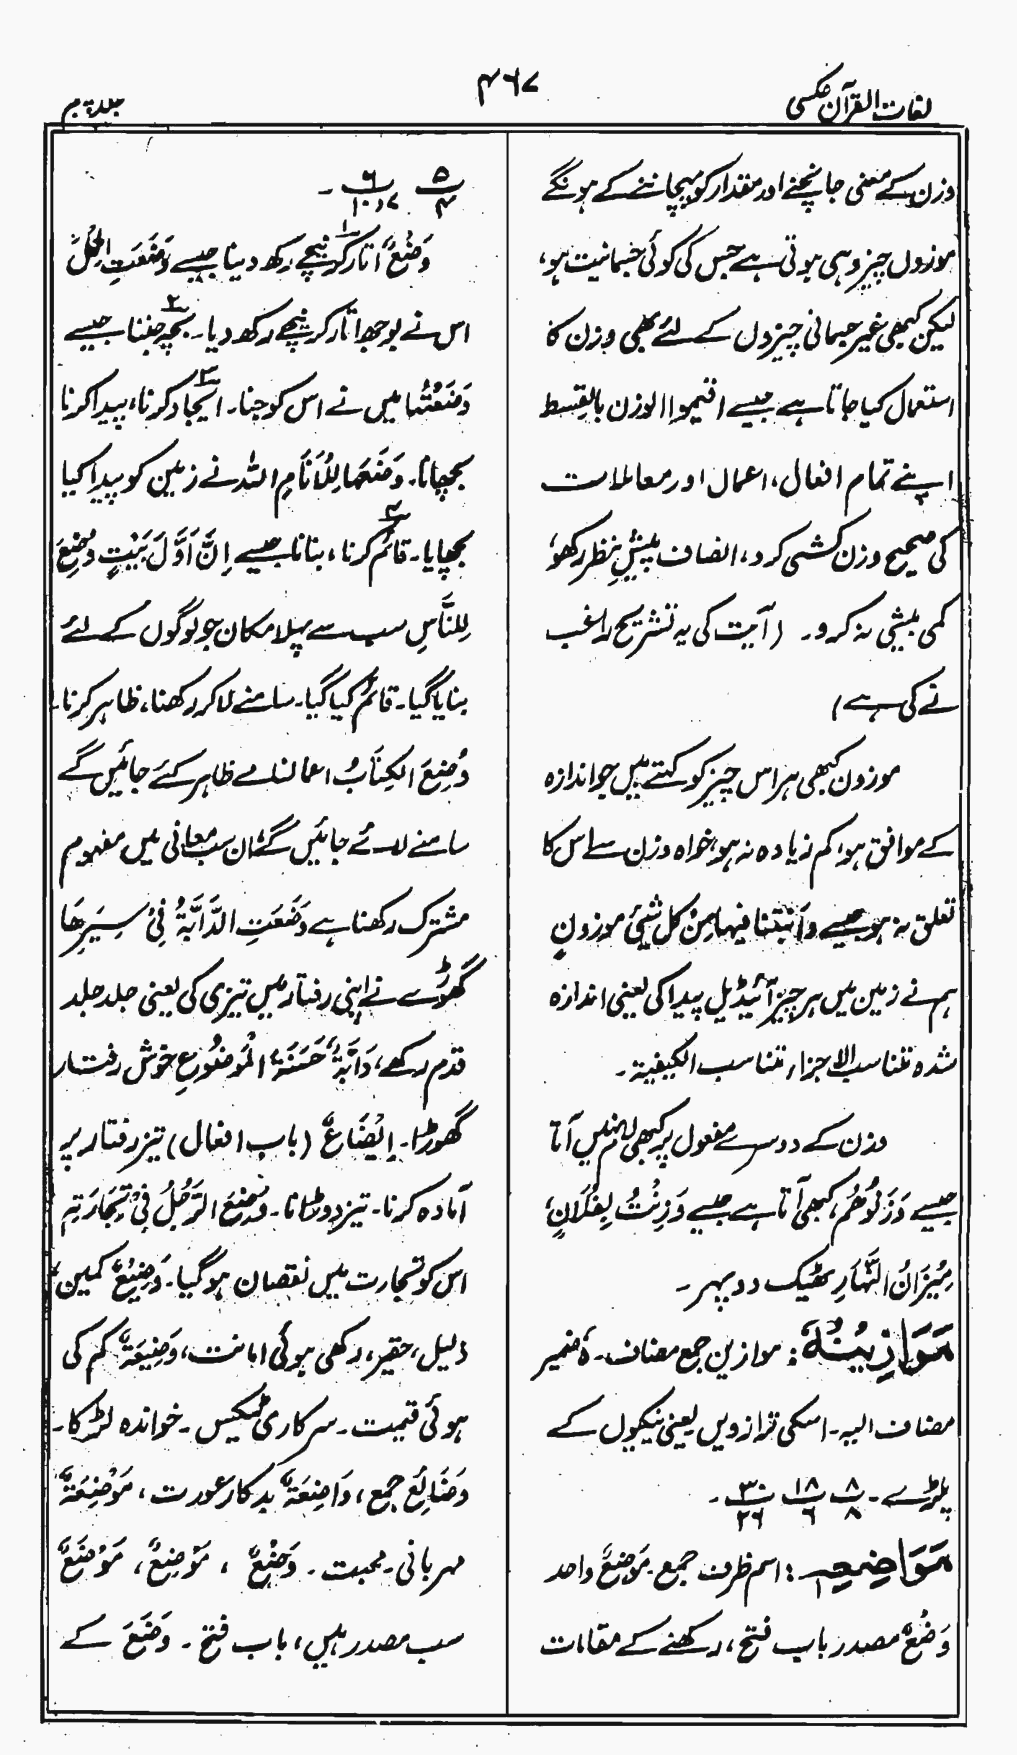 لغات القرآن عکسی
۴۶۷
جلد پنجم
وزن کے معنی جانچنے اور مقدار کو پہچاننے کے ہونگے
موزوں چیز وہی ہوتی ہے جس کی کوئی جسمانیت ہو،
لیکن کبھی غیر جسمانی چیزوں کے لئے بھی وزن کا
استعمال کیا جاتا ہے جیسے اقیموا الوزن بالقسط
اپنے تمام افعال، اعمال اور معاملات
کی صحیح وزن کشی کرو، انصاف پیشِ نظر رکھو،
کمی بیشی نہ کرو۔ (آیت کی یہ تشریح راغب
نے کی ہے)
موزون کبھی ہر اس چیز کو کہتے ہیں جو اندازہ
کے موافق ہو، کم زیادہ نہ ہو، خواہ وزن سے اس کا
تعلق نہ ہو جیسے وانبتنا فیہا من کل شیئ موزونٍ
ہم نے زمین میں ہر چیز آئیڈیل پیدا کی یعنی اندازہ
شدہ تناسب الاجزاء، تناسب الکیفیۃ۔
وزن کے دوسرے مفعول پر کبھی لام نہیں آتا
جیسے وَزَنُوْھُم، کبھی آتا ہے جیسے وَزِنْتُ لِفُلَانٍ،
مِیْزَانُ النَّہَارِ ٹھیک دوپہر۔
مَوَازِیْنُہٗ: موازین جمع مضاف۔ ہٗ ضمیر
مضاف الیہ۔ اسکی ترازویں یعنی نیکیوں کے
پلڑے۔ ۸/۸ ۱۸/۶ ۳۰/۲۶۔
مَوَاضِعِہٖ: اسم ظرف جمع۔ مَوْضِعٌ واحد
وَضْعٌ مصدر باب فتح، رکھنے کے مقامات
۵/۴ ۶/۱۰،۷۔
وَضْعٌ ۱ اتار کر نیچے رکھ دینا جیسے وَضَعَتِ الحَمْلَ
اس نے بوجھ اتار کر نیچے رکھ دیا۔ ۲ بچہ جننا جیسے
وَضَعْتُہا میں نے اس کو جنا۔ ۳ ایجاد کرنا، پیدا کرنا
بچھانا۔ وَضَعَہَا لِلْاَنَامِ اللہ نے زمین کو پیدا کیا
بچھایا۔ ۴ قائم کرنا، بنانا جیسے اِنَّ اَوَّلَ بَیْتٍ وُضِعَ
لِلنَّاسِ سب سے پہلا مکان جو لوگوں کے لئے
بنایا گیا۔ قائم کیا گیا۔ سامنے لا کر رکھنا، ظاہر کرنا۔
وُضِعَ الکِتَابُ اعمالنامے ظاہر کئے جائیں گے
سامنے لائے جائیں گے، ان سب معانی میں مفہوم
مشترک رکھنا ہے وَضَعَتِ الدَّابَّۃُ فِیْ سَیْرِھَا
گھوڑے نے اپنی رفتار میں تیزی کی یعنی جلد جلد
قدم رکھے، دَابَّۃٌ حَسَنَۃُ الْمَوْضُوْعِ خوش رفتار
گھوڑا۔ اِیْضَاعٌ (باب افعال) تیز رفتار پر
آمادہ کرنا۔ تیز دوڑانا۔ وُضِعَ الرَّجُلُ فِیْ تِجَارَتِہٖ
اس کو تجارت میں نقصان ہوگیا۔ وَضِیْعٌ کمین،
ذلیل، حقیر، رکھی ہوئی امانت، وَضِیْعَۃٌ کم کی
ہوئی قیمت۔ سرکاری ٹیکس۔ خواندہ لڑکا۔
وَضَائِعُ جمع، وَاضِعَۃٌ بدکار عورت، مَوْضِعَۃٌ
مہربانی۔ محبت۔ وَضْعٌ، مَوْضِعٌ، مَوْضَعٌ
سب مصدر ہیں، باب فتح۔ وَضَعَ کے